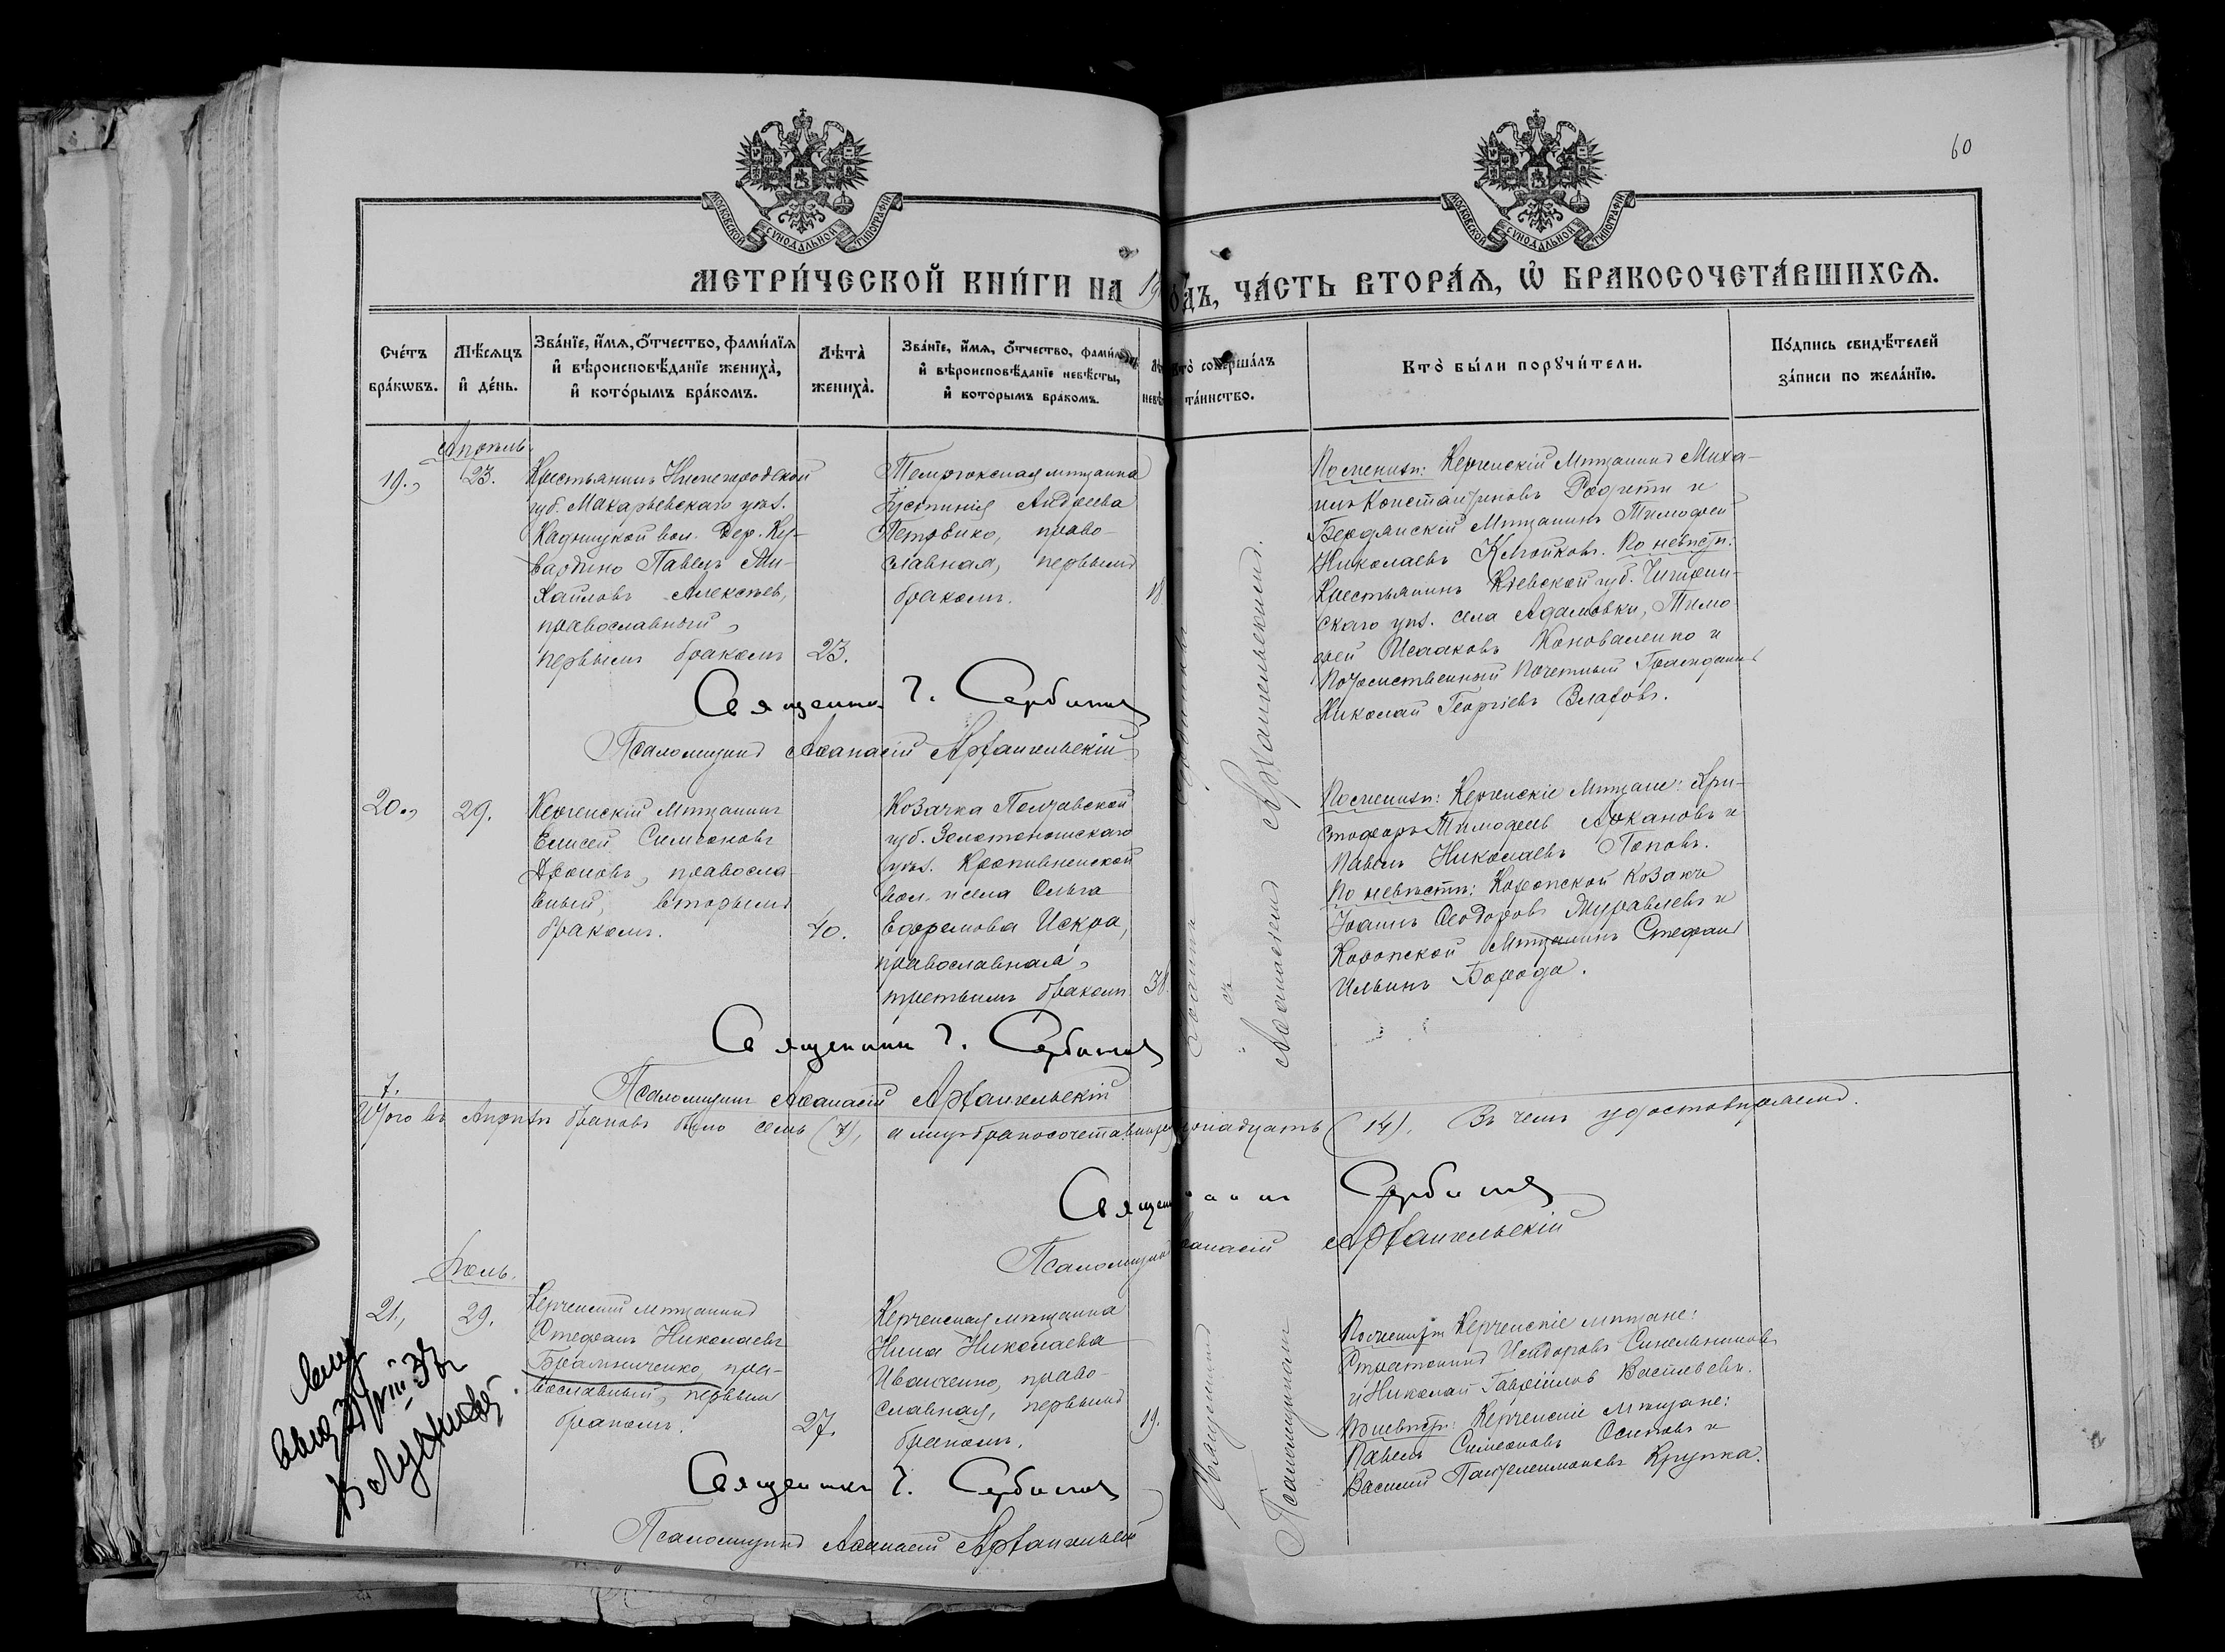 60
МОСКОВСКОЙ СѴНОДАЛЬНОЙ ТИПОГРАФІИ
МОСКОВСКОЙ СѴНОДАЛЬНОЙ ТИПОГРАФІИ
МЕТРИ́ЧЕСКОЙ КНИ́ГИ НА 19
О́ДЪ, ЧА́СТЬ ВТОРА́Я, Ѿ БРАКОСОЧЕТА́ВШИХСѦ.
Сче́тъ
бра́кѡвъ.
Мѣ́сяцъ
и҆ де́нь.
Зва́нїе, и҆́мѧ, ѻ҆́тчество, фами́лїѧ
и҆ вѣроисповѣ́данїе жениха̀,
и҆ кото́рымъ бра́комъ.
Лѣ́та
жениха̀.
Зва́нїе, и҆́мѧ, ѻ҆́тчество, фами́л
и҆ вѣроисповѣ́данїе невѣ́сты,
и҆ кото́рымъ бра́комъ.
Кто̀ соверша́лъ
та́инство.
Кто̀ бы́ли порꙋчи́тели.
По́дпись свидѣ́телей
за́писи по жела́нїю.
Апрѣль
19.,
23.
Крестьянинъ Нижегородской
губ. Макарьевскаго уѣз.
Кадницкой вол. Дер. Ку-
вардино Павелъ Ми-
хайловъ Алексѣев,
православный,
первымъ бракомъ
23.
Темрюкская мѣщанка
Іустинія Андреева
Петровико, право-
славная, первымъ
бракомъ.
18
По женихѣ: Керченскій Мѣщанинъ Миха-
илъ Константиновъ и
Бердянскій Мѣщанинъ Тимофей
Николаевъ Клюйковъ. По невѣстѣ:
Крестьянинъ Кіевской губ. Чигирин-
скаго уѣз. села Адамовки, Тимо-
фей Исааковъ Коноваленко и
Потомственный Почетный Гражданинъ
Николай Георгіевъ Влаховъ.
Священник І. Сербиновъ
Псаломщикъ Аѳанасій Архангельскій
20.,
29.
Керченскій Мѣщанинъ
Елисей Симеоновъ
Дроновъ, правосла-
вный, вторымъ
бракомъ.
40.
Козачка Полтавской
губ. Золотоношскаго
уѣз. Кропивненской
вол. и села Ольга
Ефремова Искра,
православная,
третьимъ бракомъ
38.
По женихѣ: Керченскіе Мѣщане: Хри-
стофоръ Тимофеевъ Аркановъ и
Павелъ Николаевъ Поповъ.
По невѣстѣ: Коропской Козакъ
Іоаннъ Ѳеодоровъ Муравлевъ и
Коропской Мѣщанинъ Стефанъ
Ильинъ Борода.
Священник І. Сербиновъ
Псаломщикъ Аѳанасій Архангельскій
7.
Итого въ Апрѣлѣ браковъ было семь (7), а лицъ бракосочетавшихся (14). Въ чемъ удостовѣряемъ.
Сербиновъ
Псаломщикъ Аѳанасій Архангельскій
Іюль.
21.,
29.
Керченскій мѣщанинъ
Стефанъ Николаевъ
Бражниченко, пра-
вославный, первымъ
бракомъ.
27.
Керченская мѣщанка
Нина Николаева
Иваненко, право-
славная, первымъ
бракомъ.
19.
По женихѣ Керченскіе мѣщане:
Стратоникъ Исидоровъ Синельниковъ
и Николай Гавріиловъ Васильевъ.
По невѣстѣ: Керченскіе мѣщане:
Павелъ Симеоновъ Осиповъ и
Василій Пантелеимоновъ Крупка.
Священник І. Сербиновъ
Псаломщикъ Аѳанасій Архангельскій
Священникъ
Псаломщикъ
Аѳанасій Архангельскій.